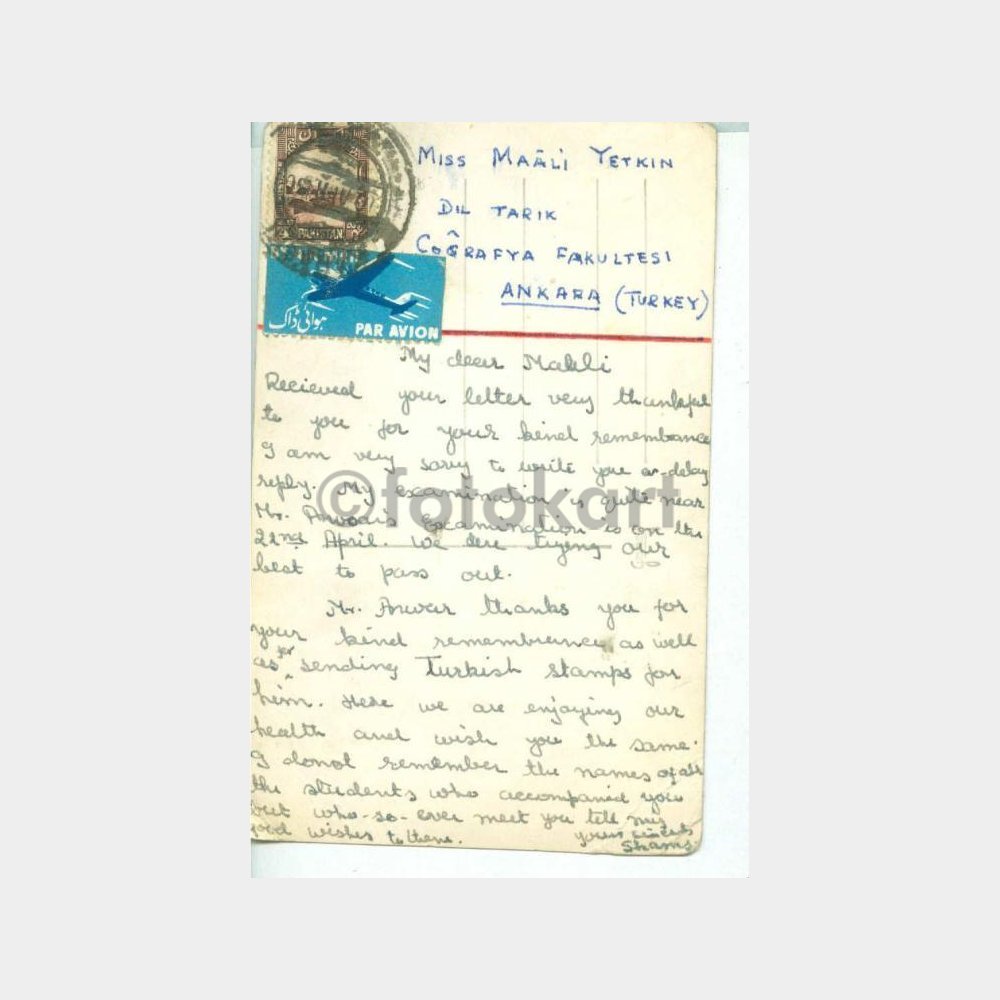 MISS MAÂLİ YETKIN
DIL TARIK
COĞRAFYA FAKULTESI
ANKARA (TURKEY)
PAKISTAN
ہوائی ڈاک
PAR AVION
My dear Maali
Recieved your letter very thankful
to you for your kind remembrance
I am very sorry to write you a delay
reply. My examination is quite near
Mr. Anwar's Examination is on the
22nd April. We are trying our
best to pass out.
Mr. Anwar thanks you for
your kind remembrance as well
as for sending Turkish stamps for
him. Here we are enjoying our
health and wish you the same.
I donot remember the names of all
the students who accompanied you
but who-so-ever meet you tell my
good wishes to them. yours
Shams.
©fotokart